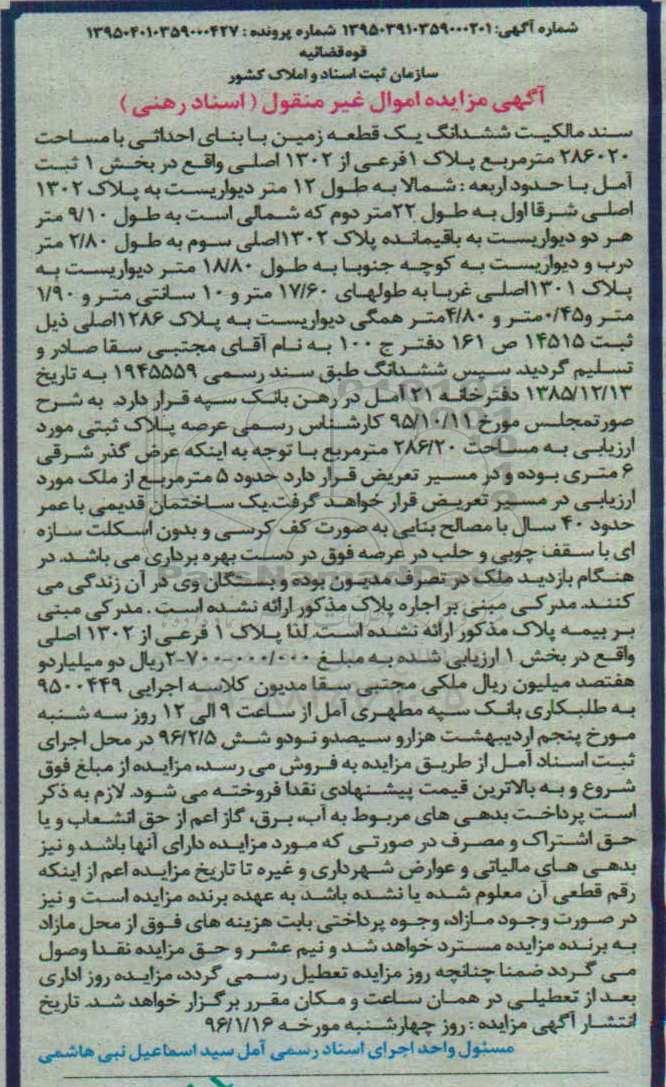 شماره آگهی: ۱۳۹۵۰۳۹۱۰۳۵۹۰۰۰۲۰۱ شماره پرونده : ۱۳۹۵۰۴۰۱۰۳۵۹۰۰۰۴۲۷
قوه قضائیه
سازمان ثبت اسناد و املاک کشور
آگهی مزایده اموال غیر منقول ( اسناد رهنی )
سند مالکیت ششدانگ یک قطعه زمین با بنای احداثی با مساحت
۲۸۶۰۲۰ مترمربع پلاک ۱فرعی از ۱۳۰۲ اصلی واقع در بخش ۱ ثبت
آمل با حدود اربعه : شمالا به طول ۱۲ متر دیواریست به پلاک ۱۳۰۲
اصلی شرقا اول به طول ۲۲متر دوم که شمالی است به طول ۹/۱۰ متر
هر دو دیواریست به باقیمانده پلاک ۱۳۰۲اصلی سوم به طول ۲/۸۰ متر
درب و دیواریست به کوچه جنوبا به طول ۱۸/۸۰ متر دیواریست به
پلاک ۱۳۰۱اصلی غربا به طولهای ۱۷/۶۰ متر و ۱۰ سانتی متر و ۱/۹۰
متر و۰/۴۵متر و ۴/۸۰متر همگی دیواریست به پلاک ۱۲۸۶اصلی ذیل
ثبت ۱۴۵۱۵ ص ۱۶۱ دفتر ج ۱۰۰ به نام آقای مجتبی سقا صادر و
تسلیم گردید. سپس ششدانگ طبق سند رسمی ۱۹۴۵۵۵۹ به تاریخ
۱۳۸۵/۱۲/۱۳ دفترخانه ۲۱ آمل در رهن بانک سپه قرار دارد. به شرح
صورتمجلس مورخ ۹۵/۱۰/۱۱ کارشناس رسمی عرصه پلاک ثبتی مورد
ارزیابی به مساحت ۲۸۶/۲۰ مترمربع با توجه به اینکه عرض گذر شرقی
۶ متری بوده و در مسیر تعریض قرار دارد حدود ۵ مترمربع از ملک مورد
ارزیابی در مسیر تعریض قرار خواهد گرفت.یک ساختمان قدیمی با عمر
حدود ۴۰ سال با مصالح بنایی به صورت کف کرسی و بدون اسکلت سازه
ای با سقف چوبی و حلب در عرصه فوق در دست بهره برداری می باشد. در
هنگام بازدید ملک در تصرف مدیون بوده و بستگان وی در آن زندگی می
کنند. مدرکی مبنی بر اجاره پلاک مذکور ارائه نشده است . مدرکی مبنی
بر بیمه پلاک مذکور ارائه نشده است. لذا پلاک ۱ فرعی از ۱۳۰۲ اصلی
واقع در بخش ۱ ارزیابی شده به مبلغ ۲-۷۰۰-۰۰۰۰/۰۰۰ریال دو میلیاردو
هفتصد میلیون ریال ملکی مجتبی سقا مدیون کلاسه اجرایی ۹۵۰۰۴۴۹
به طلبکاری بانک سپه مطهری آمل از ساعت ۹ الی ۱۲ روز سه شنبه
مورخ پنجم اردیبهشت هزارو سیصدو نودو شش ۹۶/۲/۵ در محل اجرای
ثبت اسناد آمل از طریق مزایده به فروش می رسد، مزایده از مبلغ فوق
شروع و به بالاترین قیمت پیشنهادی نقدا فروخته می شود. لازم به ذکر
است پرداخت بدهی های مربوط به آب، برق، گاز اعم از حق انشعاب و یا
حق اشتراک و مصرف در صورتی که مورد مزایده دارای آنها باشد و نیز
بدهی های مالیاتی و عوارض شهرداری و غیره تا تاریخ مزایده اعم از اینکه
رقم قطعی آن معلوم شده یا نشده باشد به عهده برنده مزایده است و نیز
در صورت وجود مازاد، وجوه پرداختی بابت هزینه های فوق از محل مازاد
به برنده مزایده مسترد خواهد شد و نیم عشر و حق مزایده نقدا وصول
می گردد ضمنا چنانچه روز مزایده تعطیل رسمی گردد، مزایده روز اداری
بعد از تعطیلی در همان ساعت و مکان مقرر برگزار خواهد شد. تاریخ
انتشار آگهی مزایده : روز چهارشنبه مورخه ۹۶/۱/۱۶
مسئول واحد اجرای اسناد رسمی آمل سید اسماعیل نبی هاشمی